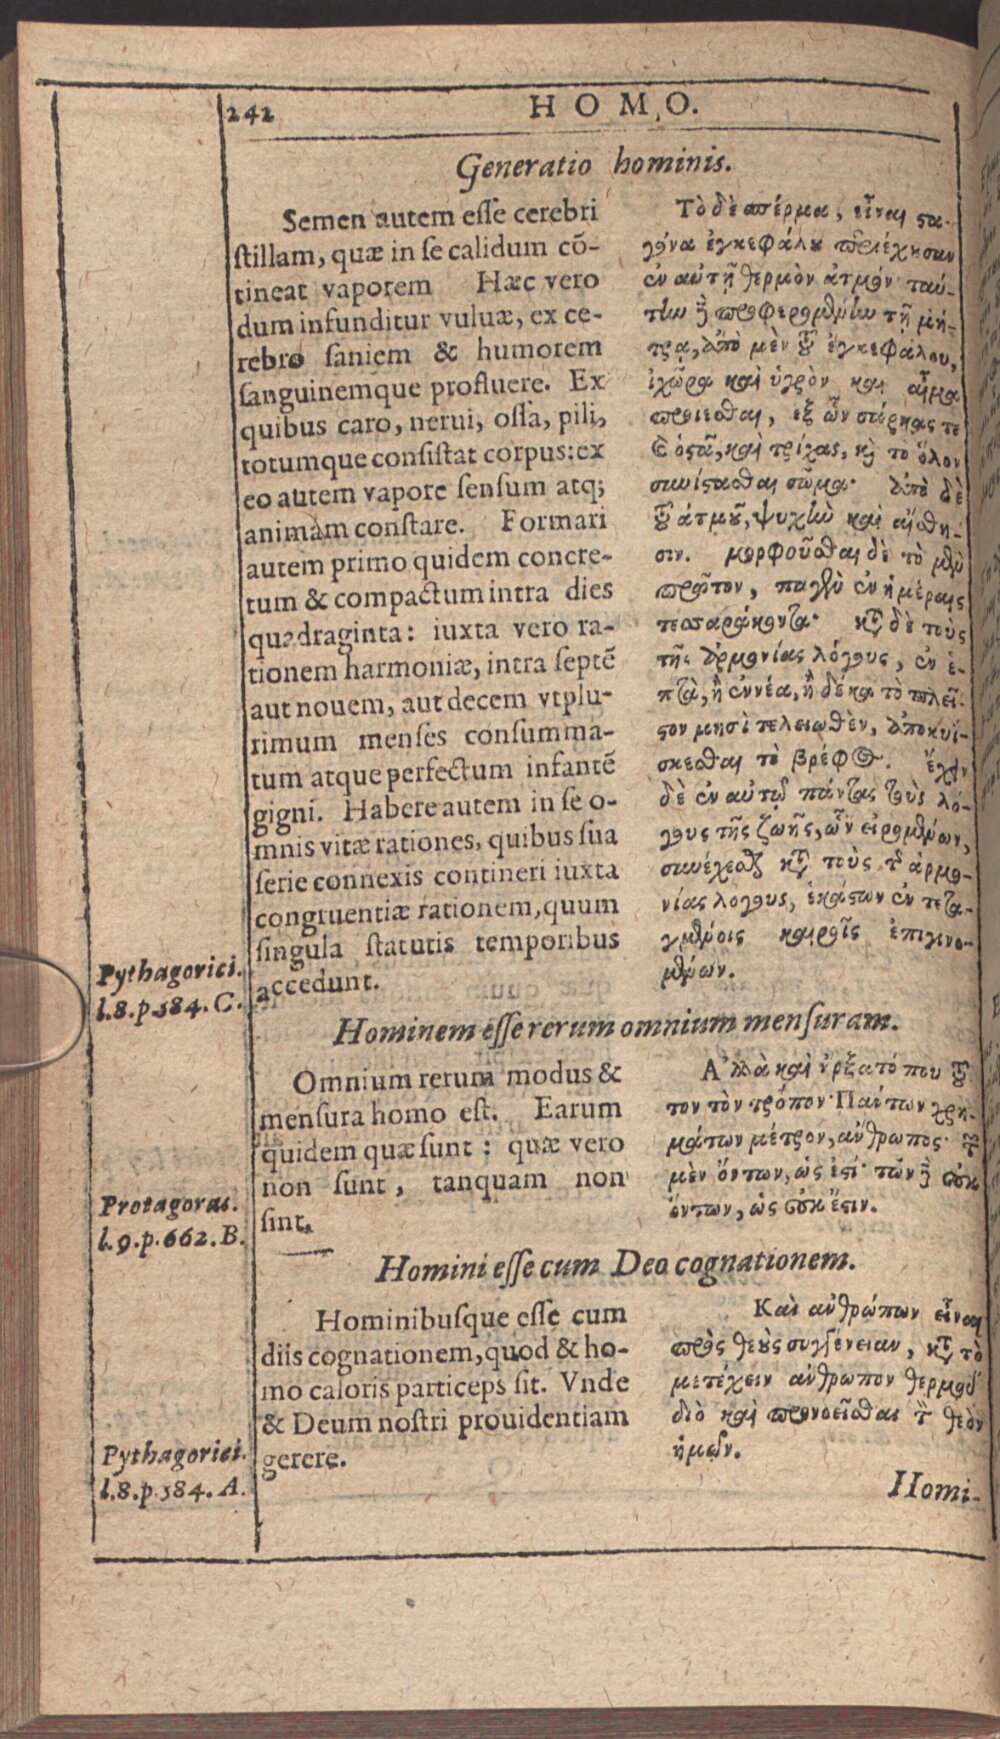 242
HOMO.
Generatio hominis.
Semen autem eſſe cerebri
ſtillam, quæ in ſe calidum cō-
tineat vaporem Hæc vero
dum infunditur vuluæ, ex ce-
rebro ſaniem & humorem
ſanguinemque profluere. Ex
quibus caro, nerui, oſſa, pili,
totumque conſiſtat corpus: ex
eo autem vapore ſenſum atq;
animam conſtare. Formari
autem primo quidem concre-
tum & compactum intra dies
quadraginta: iuxta vero ra-
tionem harmoniæ, intra ſeptē
aut nouem, aut decem vtplu-
rimum menſes conſumma-
tum atque perfectum infantē
gigni. Habere autem in ſe o-
mnis vitæ rationes, quibus ſua
ſerie connexis contineri iuxta
congruentiæ rationem, quum
ſingula ſtatutis temporibus
accedunt.
Τὸ δὲ σπέρμα, εἶναι ϛα-
γόνα ἐγκεφάλου περιέχουσαν
ἐν αὑτῇ θερμὸν ἀτμόν· ταύ-
την δὲ προσφερομένην τῇ μή-
τρᾳ, ἀπὸ μὲν τοῦ ἐγκεφάλου,
ἰχῶρα καὶ ὑγρὸν καὶ αἷμα
προίεσθαι, ἐξ ὧν σάρκας τε
καὶ ὀϛᾶ, καὶ τρίχας, καὶ τὸ ὅλον
συνίϛασθαι σῶμα· ἀπὸ δὲ
τοῦ ἀτμοῦ, ψυχὴν καὶ αἴσθη-
σιν. μορφοῦσθαι δὲ τὸ μὲν
πρῶτον, παγὲν ἐν ἡμέραις
τεσσαράκοντα· κατὰ δὲ τοὺς
τῆς ἁρμονίας λόγους, ἐν ἑ-
πτὰ, ἢ ἐννέα, ἢ δέκα τὸ πλεῖ-
ϛον μησὶ τελειωθὲν, ἀποκυί-
σκεσθαι τὸ βρέφος. ἔχειν
δὲ ἐν αὑτῷ πάντας τοὺς λό-
γους τῆς ζωῆς, ὧν εἰρομένων,
συνέχεσθαι κατὰ τοὺς τῆς ἁρμο-
νίας λόγους, ἑκάϛων ἐν τεταγ-
μένοις καιροῖς ἐπιγινο-
μένων.
Pythagorici.
l.8.p.584.C.
Hominem eſſe rerum omnium menſuram.
Omnium rerum modus &
menſura homo eſt. Earum
quidem quæ ſunt: quæ vero
non ſunt, tanquam non
ſint.
Ἀλλὰ καὶ ἤρξατό που τοῦ
τον τὸν τρόπον· Πάντων χρη-
μάτων μέτρον, ἄνθρωπος· τῶν
μὲν ὄντων, ὡς ἐϛί· τῶν δὲ οὐκ
ὄντων, ὡς οὐκ ἔϛιν.
Protagoras.
l.9.p.662.B.
Homini eſſe cum Deo cognationem.
Hominibuſque eſſe cum
diis cognationem, quod & ho-
mo caloris particeps ſit. Vnde
& Deum noſtri prouidentiam
gerere.
Καὶ ἀνθρώπων εἶναι
πρὸς θεοὺς συγγένειαν, κατὰ τὸ
μετέχειν ἄνθρωπον θερμοῦ·
διὸ καὶ προνοεῖσθαι τὸν θεὸν
ἡμῶν.
Pythagorici.
l.8.p.584.A.
Homi-